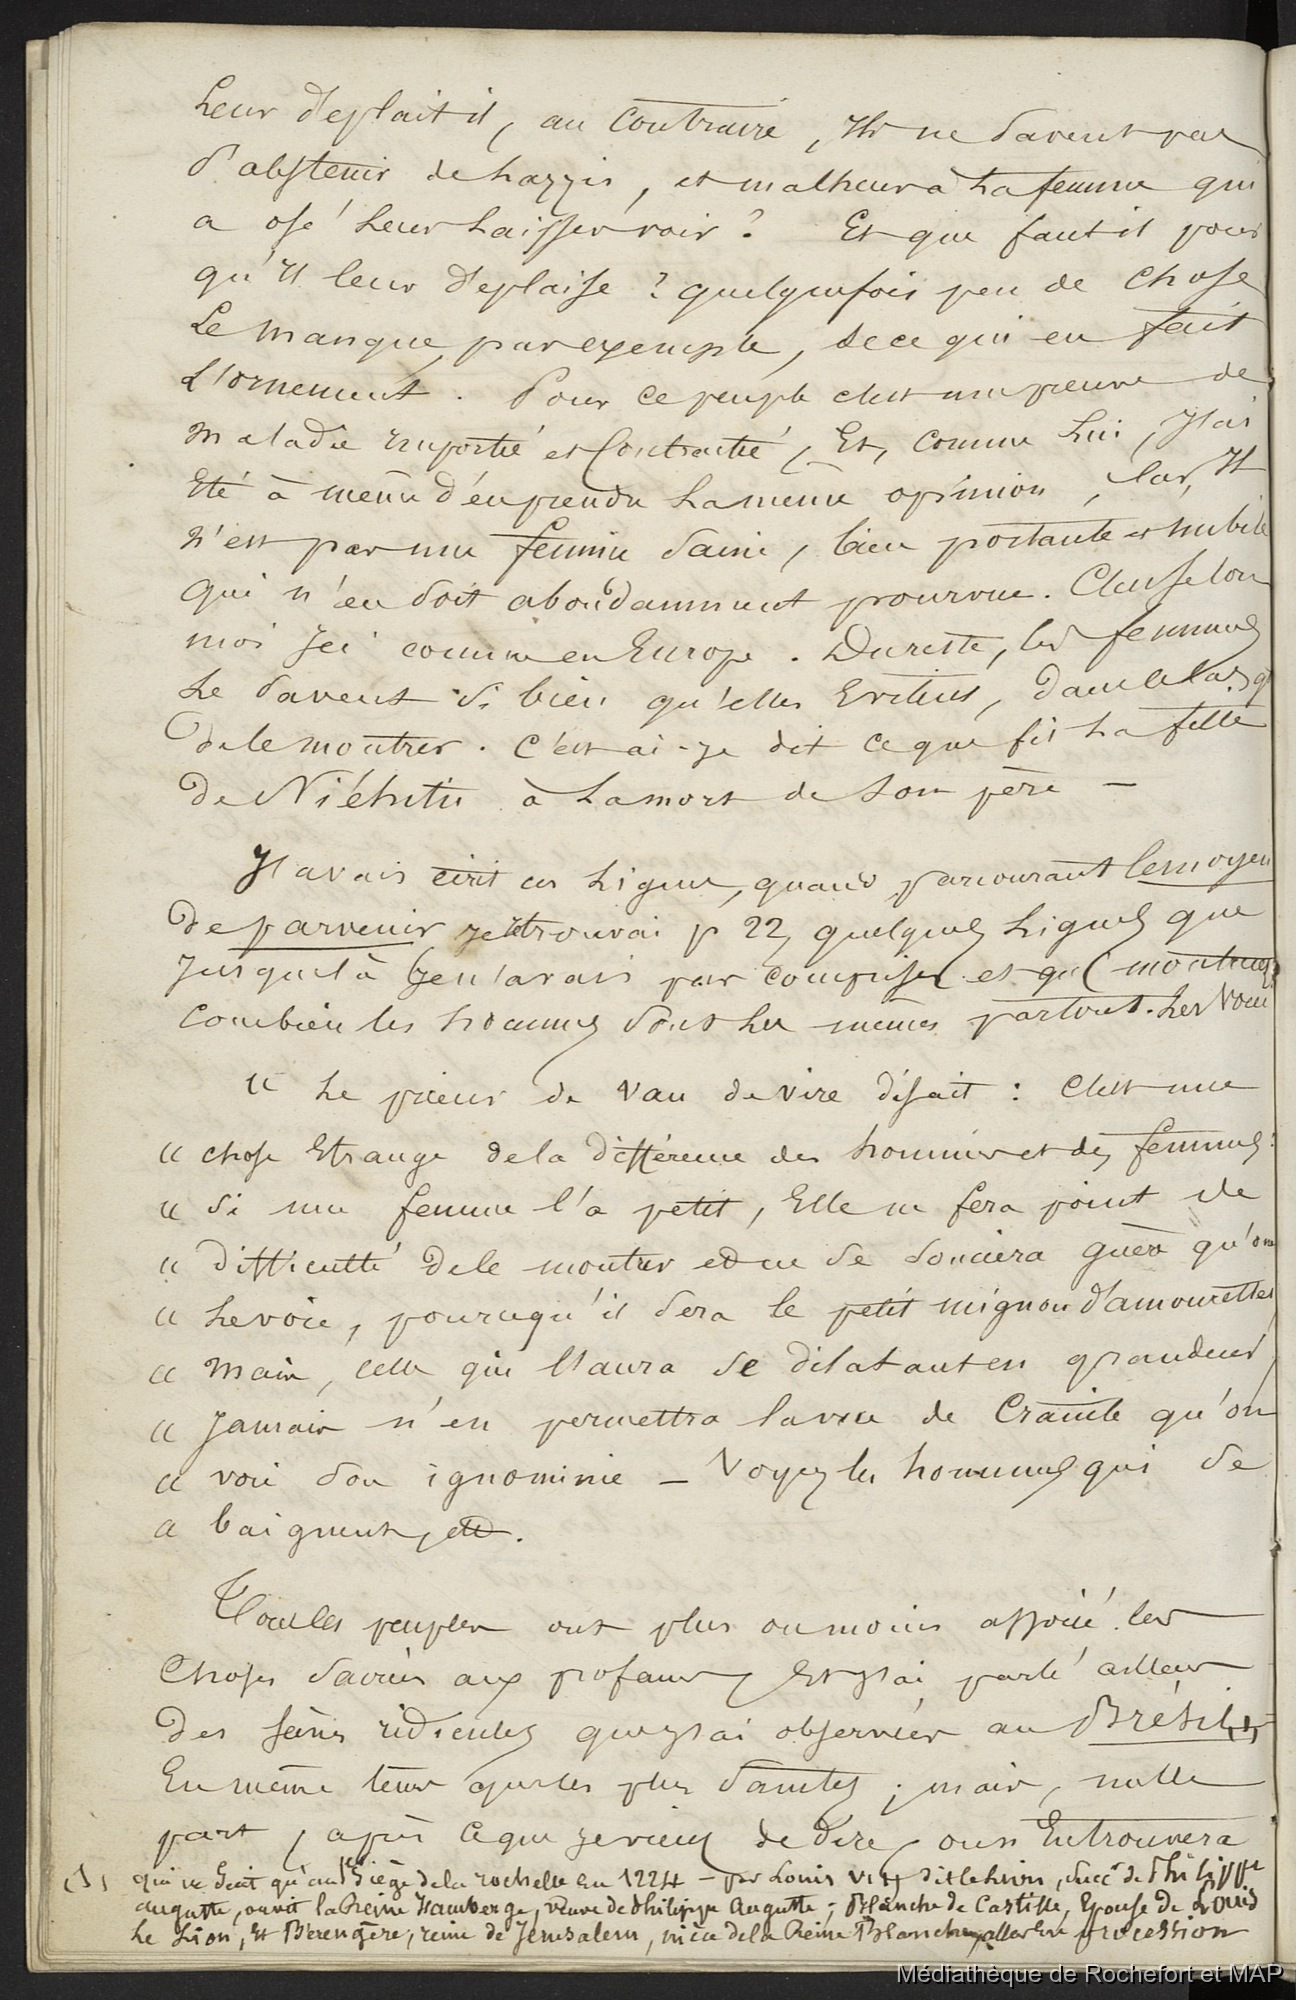 Leur déplait il, au contraire, Ils ne savent pas
s'abstenir de lazzis, et malheur à la femme qui
a osé leur laisser voir ? Et que faut il pour
qu'Il leur déplaise ? quelquefois peu de chose
Le manque, par exemple, de ce qui en fait
L'ornement. Pour ce peuple c'est une preuve de
maladie et contractée, Et, comme lui, J'ai
Eté à même d'en prendre la même opinion, Car, Il
n'est pas une femme saine, bien portante et nubile
qui n'en soit abondamment pourvue. C'est selon
moi Ici comme en Europe. Du reste, les femmes
le savent si bien qu'elles Evitent, dans le cas,
de le montrer. C'est ai-je dit ce que fit la fille
de Niéhitu à la mort de son père —
J'avais écrit ces lignes, quand, parcourant le moyen
de parvenir, je trouvai p 22, quelques lignes que
Jusque là je n'avais pas comprises et qui montrent
combien les hommes sont les mêmes partout. Les voici
" Le prieur de Vau de vire disait : C'est une
" chose Etrange de la différence des hommes et des femmes :
" si une femme l'a petit, Elle ne fera point de
" difficulté de le montrer et ne se souciera guère qu'on
" le voie, pourcequ'il sera le petit mignon d'amourettes
" Mais, celle qui l'aura se dilatant en grandeur,
" Jamais n'en permettra la vue de Crainte qu'on
" voie son ignominie — Voyez les hommes qui se
" baignent, etc.
Tous les peuples ont plus ou moins associé les
Choses sacrées aux profanes, Et j'ai parlé ailleurs
des scènes ridicules que j'ai observées au Brésil (1)
En même tems que les plus saintes ; mais, nulle
part, après ce que je viens de dire, on n'En trouvera
(1) qui ne sait qu'au siège de la rochelle en 1224 — par Louis VIII dit le lion, succr de Philippe
auguste, on vit la Reine Isamberge, veuve de Philippe Auguste ; Blanche de Castille, Epouse de Louis
le Lion, Et Bérengère, reine de Jérusalem, nièce de la Reine Blanche, aller En procession
Médiathèque de Rochefort et MAP